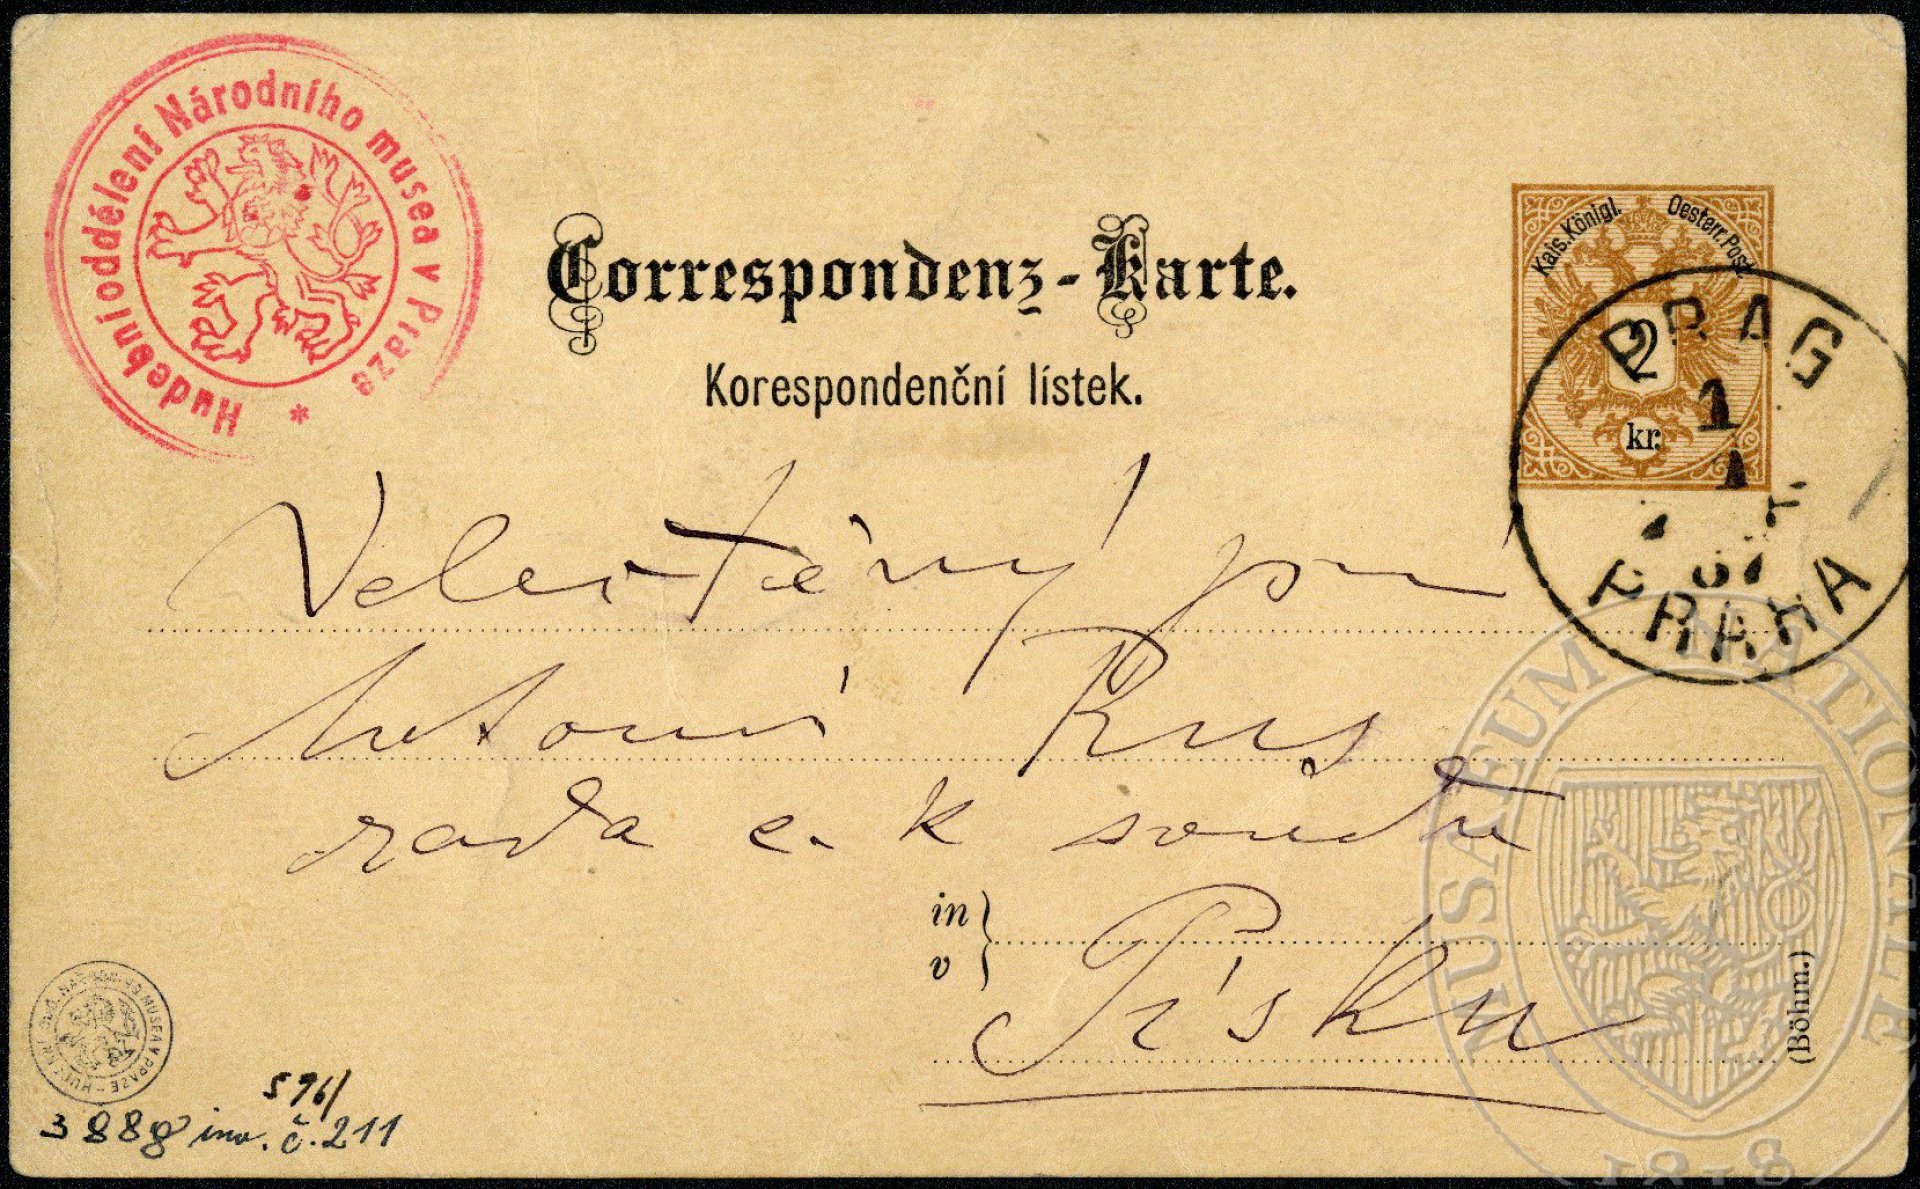 Hudební oddělení Národního musea v Praze *
Correspondenz-Karte.
Korespondenční lístek.
Kais. Königl. Oesterr. Post
2
kr.
PRAG
1
1
PRAHA
Velectěný pan
Antonín Rus
rada c. k soudu
in
v
Písku
(Böhm.)
596/
3888 inv. č. 211
MUSAEUM NATIONALE
1818